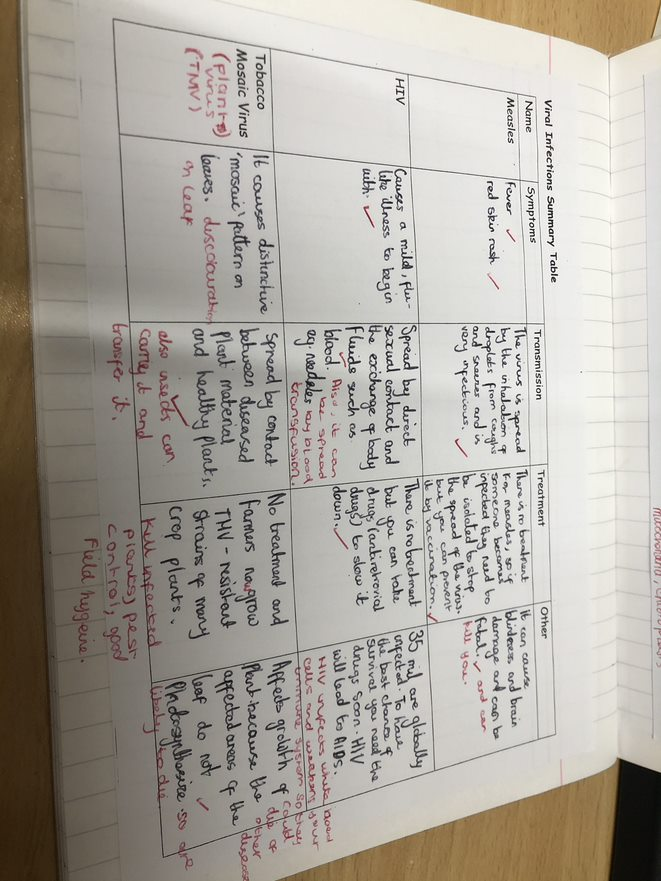 Viral Infections Summary Table
Name
Symptoms
Transmission
Treatment
Other
Measles
Fever ✓
red skin rash ✓
The virus is spread
by the inhalation of
droplets from coughs
and sneezes and is
very infectious. ✓
There is no treatment
for measles, so if
someone becomes
infected they need to
be isolated to stop
the spread of the virus.
but you can prevent
it by vaccination. ✓
it can cause
blindness and brain
damage and can be
fatal. ✓ and can
kill you.
HIV
Causes a mild, flu-
like illness to begin
with. ✓
Spread by direct
sexual contact and
the exchange of body
fluids such as
blood. Also, it can
be spread
eg needles by blood
transfusion.
There is no treatment
but you can take
drugs (antiretroviral
drugs) to slow it
down. ✓
35 mil are globally
infected. To have
the best chance of
survival you need the
drugs soon. HIV
will lead to AIDS.
HIV infects white blood
cells and weakens your
immune system so they
could
die of
other
disease
Tobacco
Mosaic Virus
(plant
virus)
(TMV)
It causes distinctive
'mosaic' pattern on
leaves. discolouration
on leaf
Spread by contact
between diseased
plant material
and healthy plants.
also insects can
carry it and
transfer it.
No treatment and
farmers now grow
TMV-resistant
strains of many
crop plants.
kill infected
plants, pest
control, good
field hygeine.
Affects growth of
plant because the
affected areas of the
leaf do not ✓
photosynthesise so are
likely to die